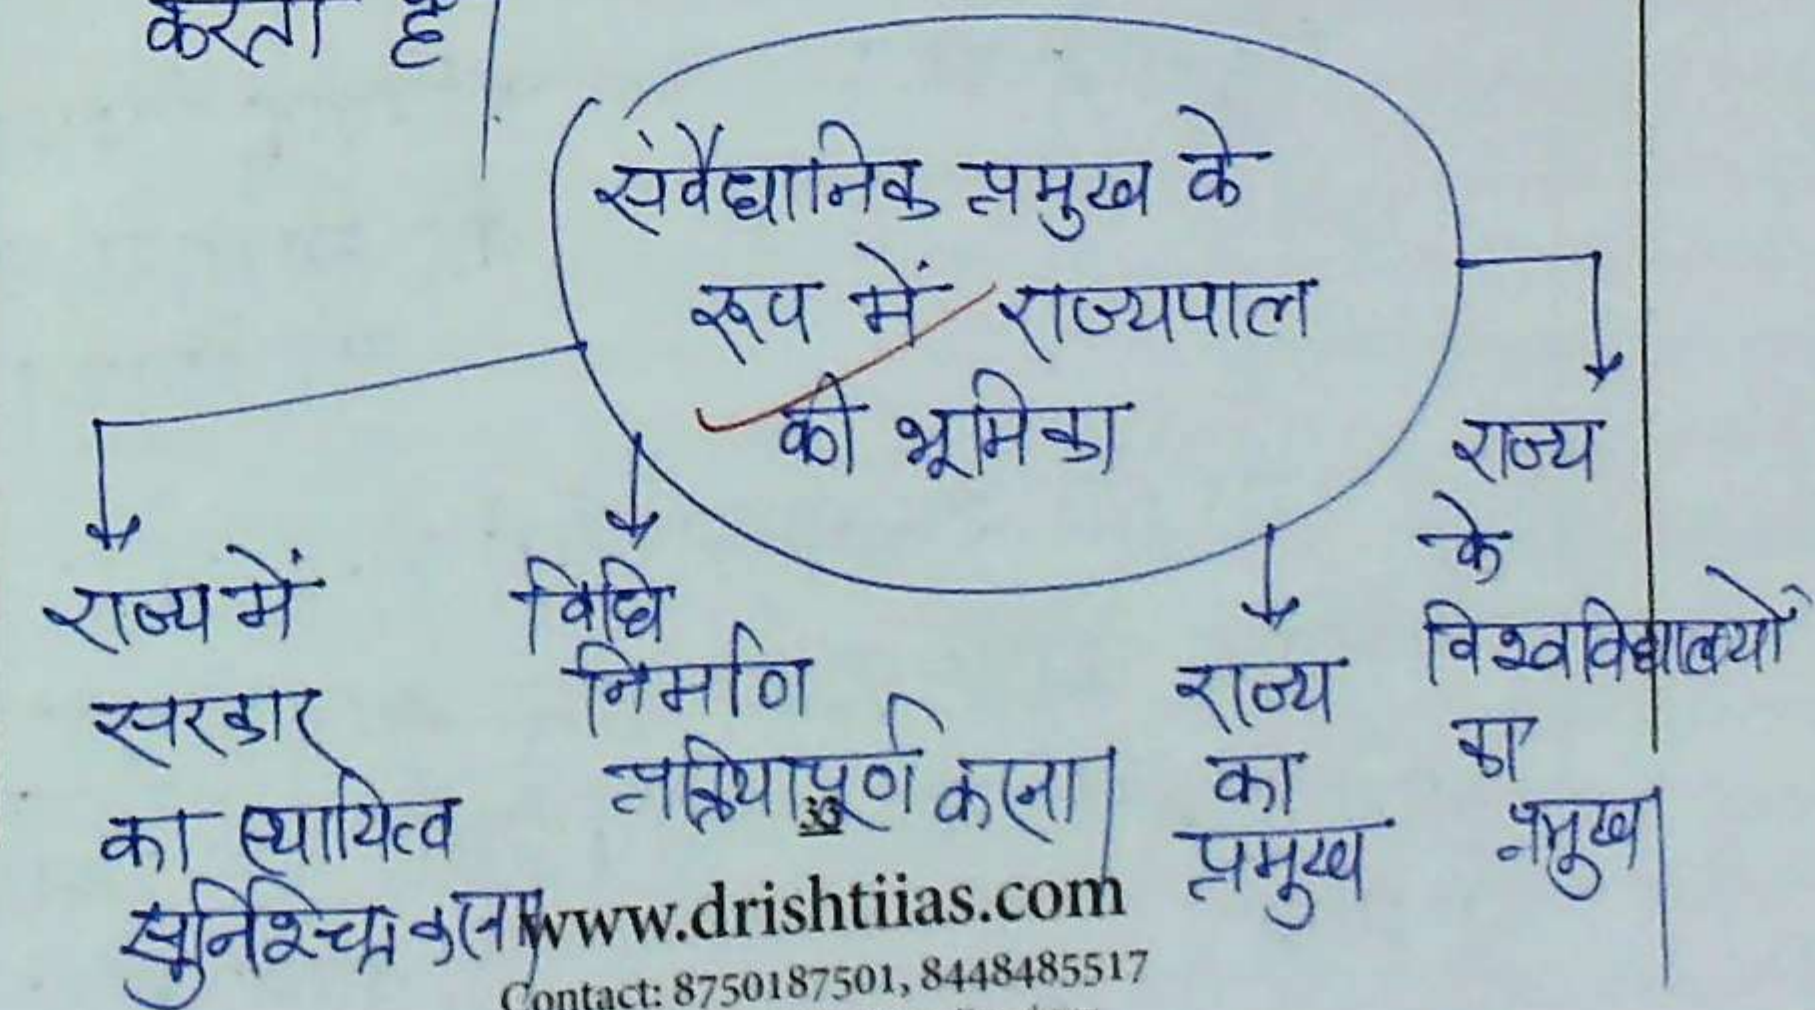 करता है।
संवैधानिक प्रमुख के
रूप में राज्यपाल
की भूमिका
राज्य में
सरकार
का स्थायित्व
सुनिश्चित करना
विधि
निर्माण
प्रक्रिया पूर्ण करना।
राज्य
का
प्रमुख
राज्य
के
विश्वविद्यालयों
का
प्रमुख।
www.drishtiias.com
Contact: 8750187501, 8448485517